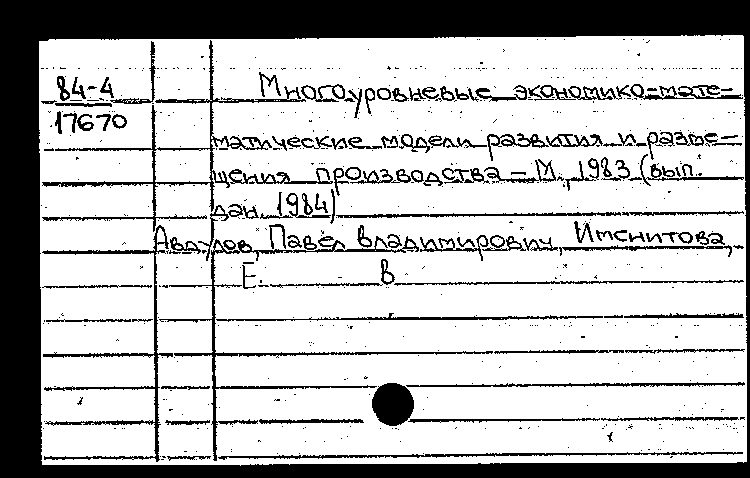 84-4
17670
Многоуровневые экономико-мате-
матические модели развития и разме-
щения производства – М., 1983 (вып.
дан. 1984)
Авдулов, Павел Владимирович, Именитова,
Е. В